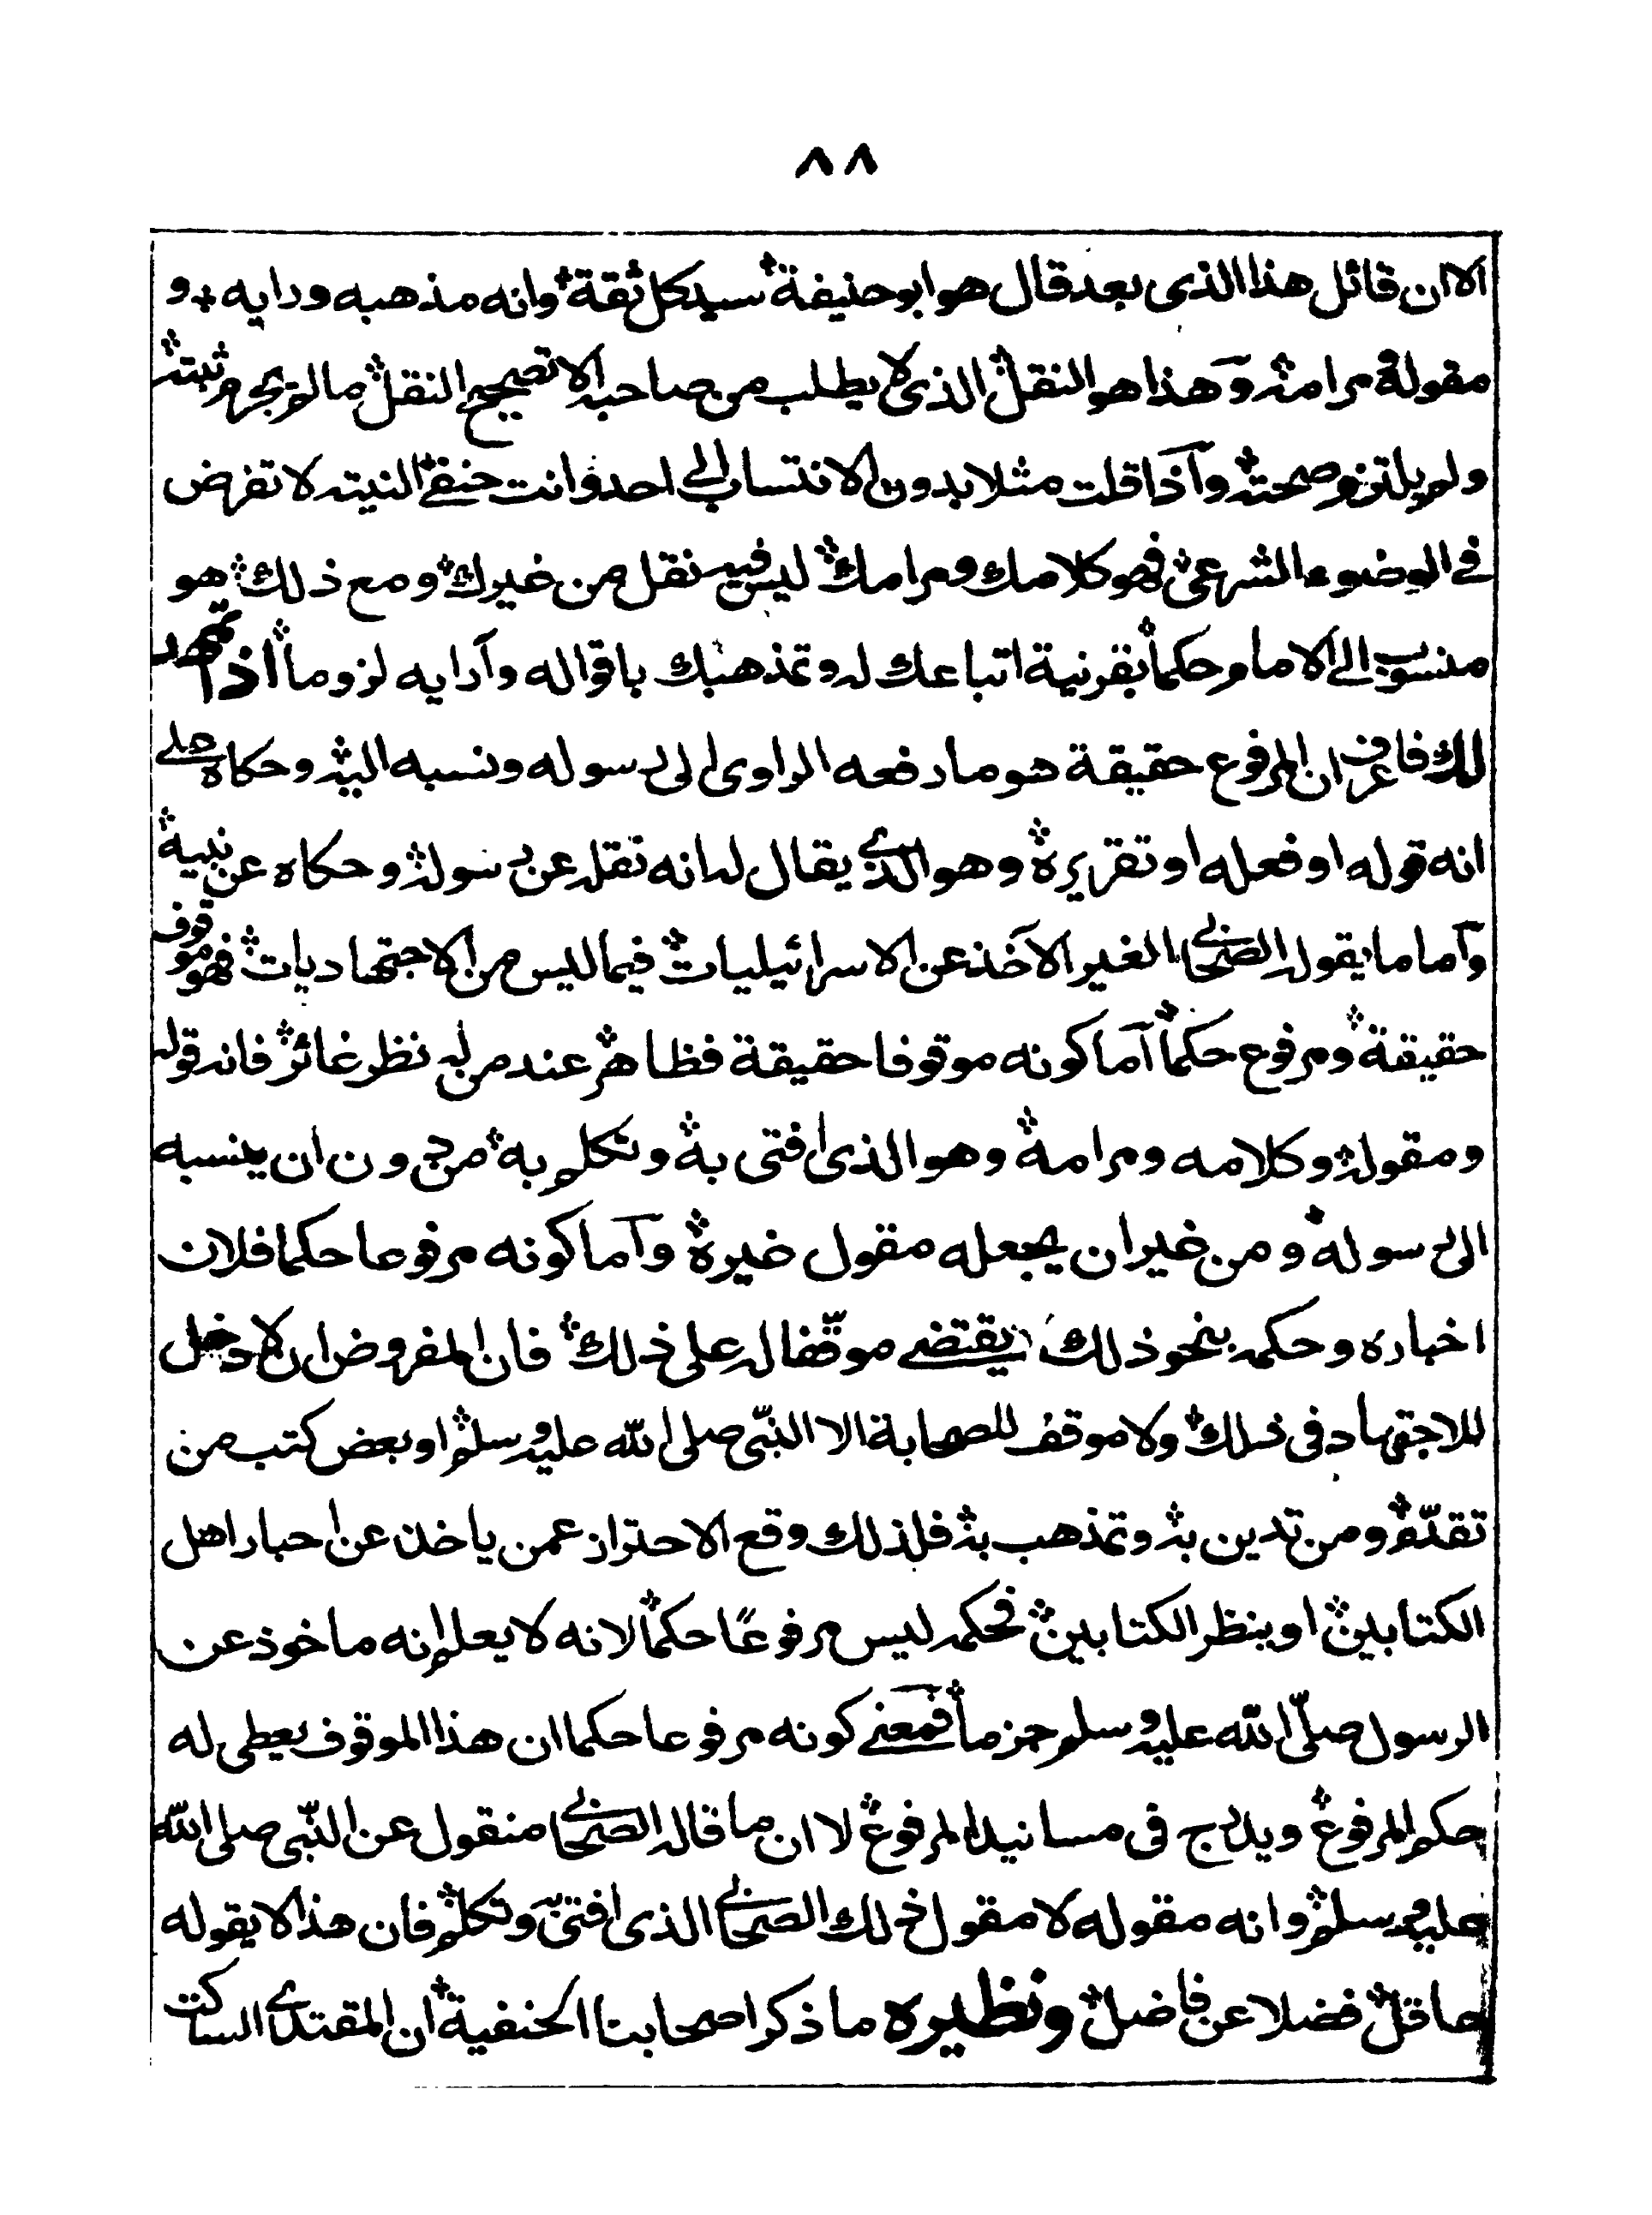 ٨٨
الا ان قائل هذا الذى بعد قال هو ابو حنيفة سيد كل ثقة وانه مذهبه ورايه و
مقوله ومرامه وهذا هو النقل الذى لا يطلب من صاحبه الا تصحيح النقل مالم يجزم ثبته
ولم يلتزم صحته وآذا قلت مثلا بدون الانتساب الى احد وانت حنفى النية لا تفرض
فى الوضوء الشرعى فهو كلامك ومرامك ليس فيه نقل من غيرك ومع ذلك هو
منسوب الى الامام حكما بقرنية اتباعك له وتمذهبك باقواله وآرايه لزوما اذا تمهد
لك فاعرف ان المرفوع حقيقة هو ما رفعه الراوى الى رسوله ونسبه اليه وحكاه على
انه قوله او فعله او تقريره وهو الذى يقال له انه نقله عن رسوله وحكاه عن نبيه
وآما ما يقوله الصحابى الغير الآخذ عن الاسرائيليات فيما ليس من الاجتهاديات فهو موقوف
حقيقة ومرفوع حكما آما كونه موقوفا حقيقة فظاهر عند من له نظر غائر فانه قوله
ومقوله وكلامه ومرامه وهو الذى افتى به وتكلم به من دون ان ينسبه
الى رسوله ومن غير ان يجعله مقول غيره وآما كونه مرفوعا حكما فلان
اخباره وحكمه بنحو ذلك يقتضى موقفا له على ذلك فان المفروض ان لا دخل
للاجتهاد فى ذلك ولا موقف للصحابة الا النبى صلى الله عليه وسلم او بعض كتب من
تقدم ومن تدين به وتمذهب به فلذلك وقع الاحتراز عمن ياخذ عن احبار اهل
الكتابين او ينظر الكتابين فحكمه ليس مرفوعًا حكما لانه لا يعلم انه ماخوذ عن
الرسول صلى الله عليه وسلم جزما فمعنى كونه مرفوعا حكما ان هذا الموقوف يعطى له
حكم المرفوع ويدرج فى مسانيد المرفوع لا ان ما قاله الصحابى منقول عن النبى صلى الله
عليه وسلم وانه مقوله لا مقول ذلك الصحابى الذى افتى به وتكلم فان هذا لا يقوله
عاقل فضلا عن فاضل ونظيره ما ذكر اصحابنا الحنفية ان المقتدى الساكت